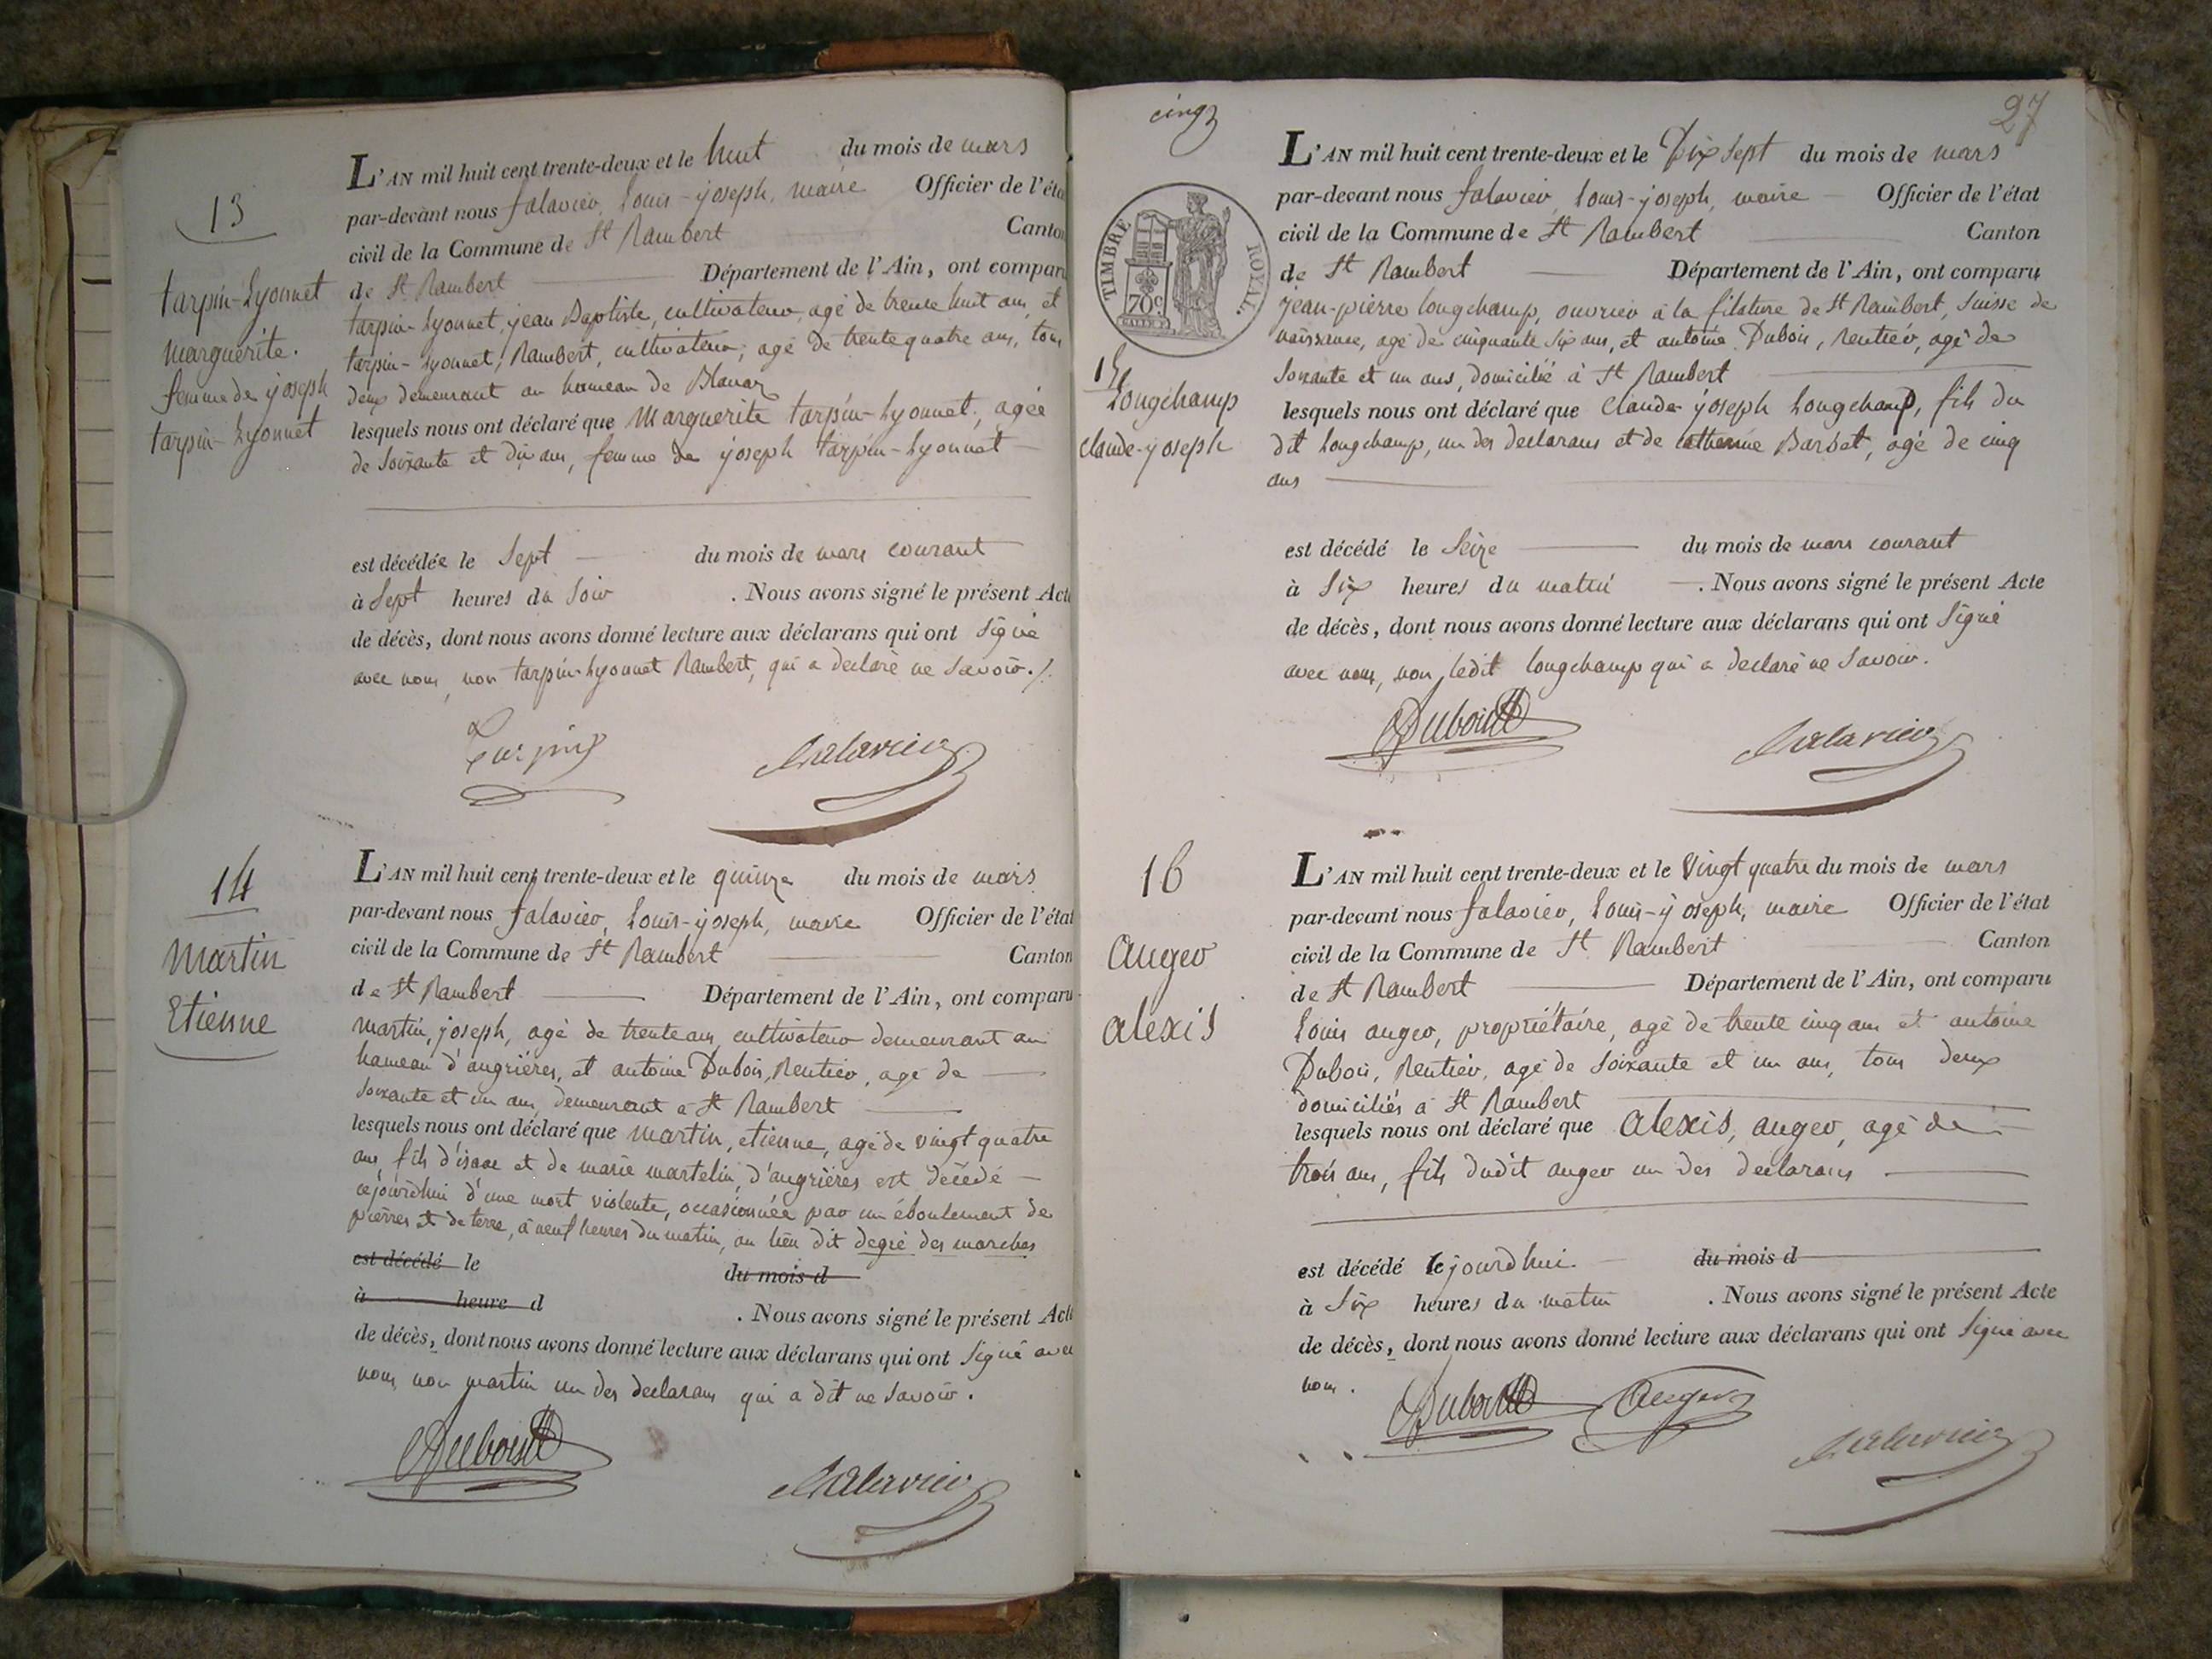 13
tarpin-Lyonnet
marguerite.
femme de joseph
tarpin-Lyonnet
L'AN mil huit cent trente-deux et le huit du mois de mars
par-devant nous falavier, Louis-joseph, maire Officier de l'éta
civil de la Commune de St Rambert Canton
de St Rambert Département de l'Ain, ont compar
tarpin-Lyonnet, jean Baptiste, cultivateur, agé de trente huit ans, et
tarpin-Lyonnet, Rambert, cultivateur, agé de trente quatre ans, tous
deux demeurant au hameau de Blanaz
lesquels nous ont déclaré que Marguerite tarpin-Lyonnet, agée
de soixante et dix ans, femme de joseph tarpin-Lyonnet
est décédée le Sept du mois de mars courant
à Sept heures du Soir . Nous avons signé le présent Acte
de décès, dont nous avons donné lecture aux déclarans qui ont Signé
avec nous, non tarpin-Lyonnet Rambert, qui a declaré ne Savoir./.
Tarpin
falavier
14
Martin
Etienne
L'AN mil huit cent trente-deux et le quinze du mois de mars
par-devant nous falavier, Louis-joseph, maire Officier de l'état
civil de la Commune de St Rambert Canton
de St Rambert Département de l'Ain, ont comparu
Martin, joseph, agé de trente ans, cultivateur demeurant au
hameau d'angrières, et antoine Dubois, Rentier, agé de
Soixante et un ans, demeurant à St Rambert
lesquels nous ont déclaré que Martin, etienne, agé de vingt quatre
ans, fils d'isaac et de marie martelin, d'angrières est décédé
cejourdhui d'une mort violente, occasionnée par un éboulement de
pierres et de terre, à neuf heures du matin, au lieu dit degré des marches
est décédé le du mois d
à heure d . Nous avons signé le présent Acte
de décès, dont nous avons donné lecture aux déclarans qui ont Signé avec
nous, non martin un des declarans qui a dit ne Savoir.
Dubois
falavier
cinq
27
TIMBRE ROYAL
70c.
15
Longchamp
claude-joseph
L'AN mil huit cent trente-deux et le Dix Sept du mois de mars
par-devant nous falavier, Louis-joseph, maire Officier de l'état
civil de la Commune de St Rambert Canton
de St Rambert Département de l'Ain, ont comparu
jean-pierre longchamp, ouvrier à la filature de St Rambert, Suisse de
naissance, agé de cinquante Six ans, et antoine Dubois, Rentier, agé de
Soixante et un ans, domicilié à St Rambert
lesquels nous ont déclaré que Claude joseph Longchamp, fils du
dit Longchamp, un des declarans et de catherine Barbet, agé de cinq
ans
est décédé le Seize du mois de mars courant
à Six heures du matin . Nous avons signé le présent Acte
de décès, dont nous avons donné lecture aux déclarans qui ont Signé
avec nous, non ledit longchamp qui a declaré ne Savoir.
Dubois
falavier
16
auger
alexis
L'AN mil huit cent trente-deux et le Vingt quatre du mois de mars
par-devant nous falavier, Louis-joseph, maire Officier de l'état
civil de la Commune de St Rambert Canton
de St Rambert Département de l'Ain, ont comparu
Louis auger, propriétaire, agé de trente cinq ans et antoine
Dubois, Rentier, agé de Soixante et un ans, tous deux
domiciliés à St Rambert
lesquels nous ont déclaré que alexis, auger, agé de
trois ans, fils dudit auger un des declarans
est décédé cejourdhui du mois d
à Six heures du matin . Nous avons signé le présent Acte
de décès, dont nous avons donné lecture aux déclarans qui ont Signé avec
nous.
Dubois
Auger
falavier